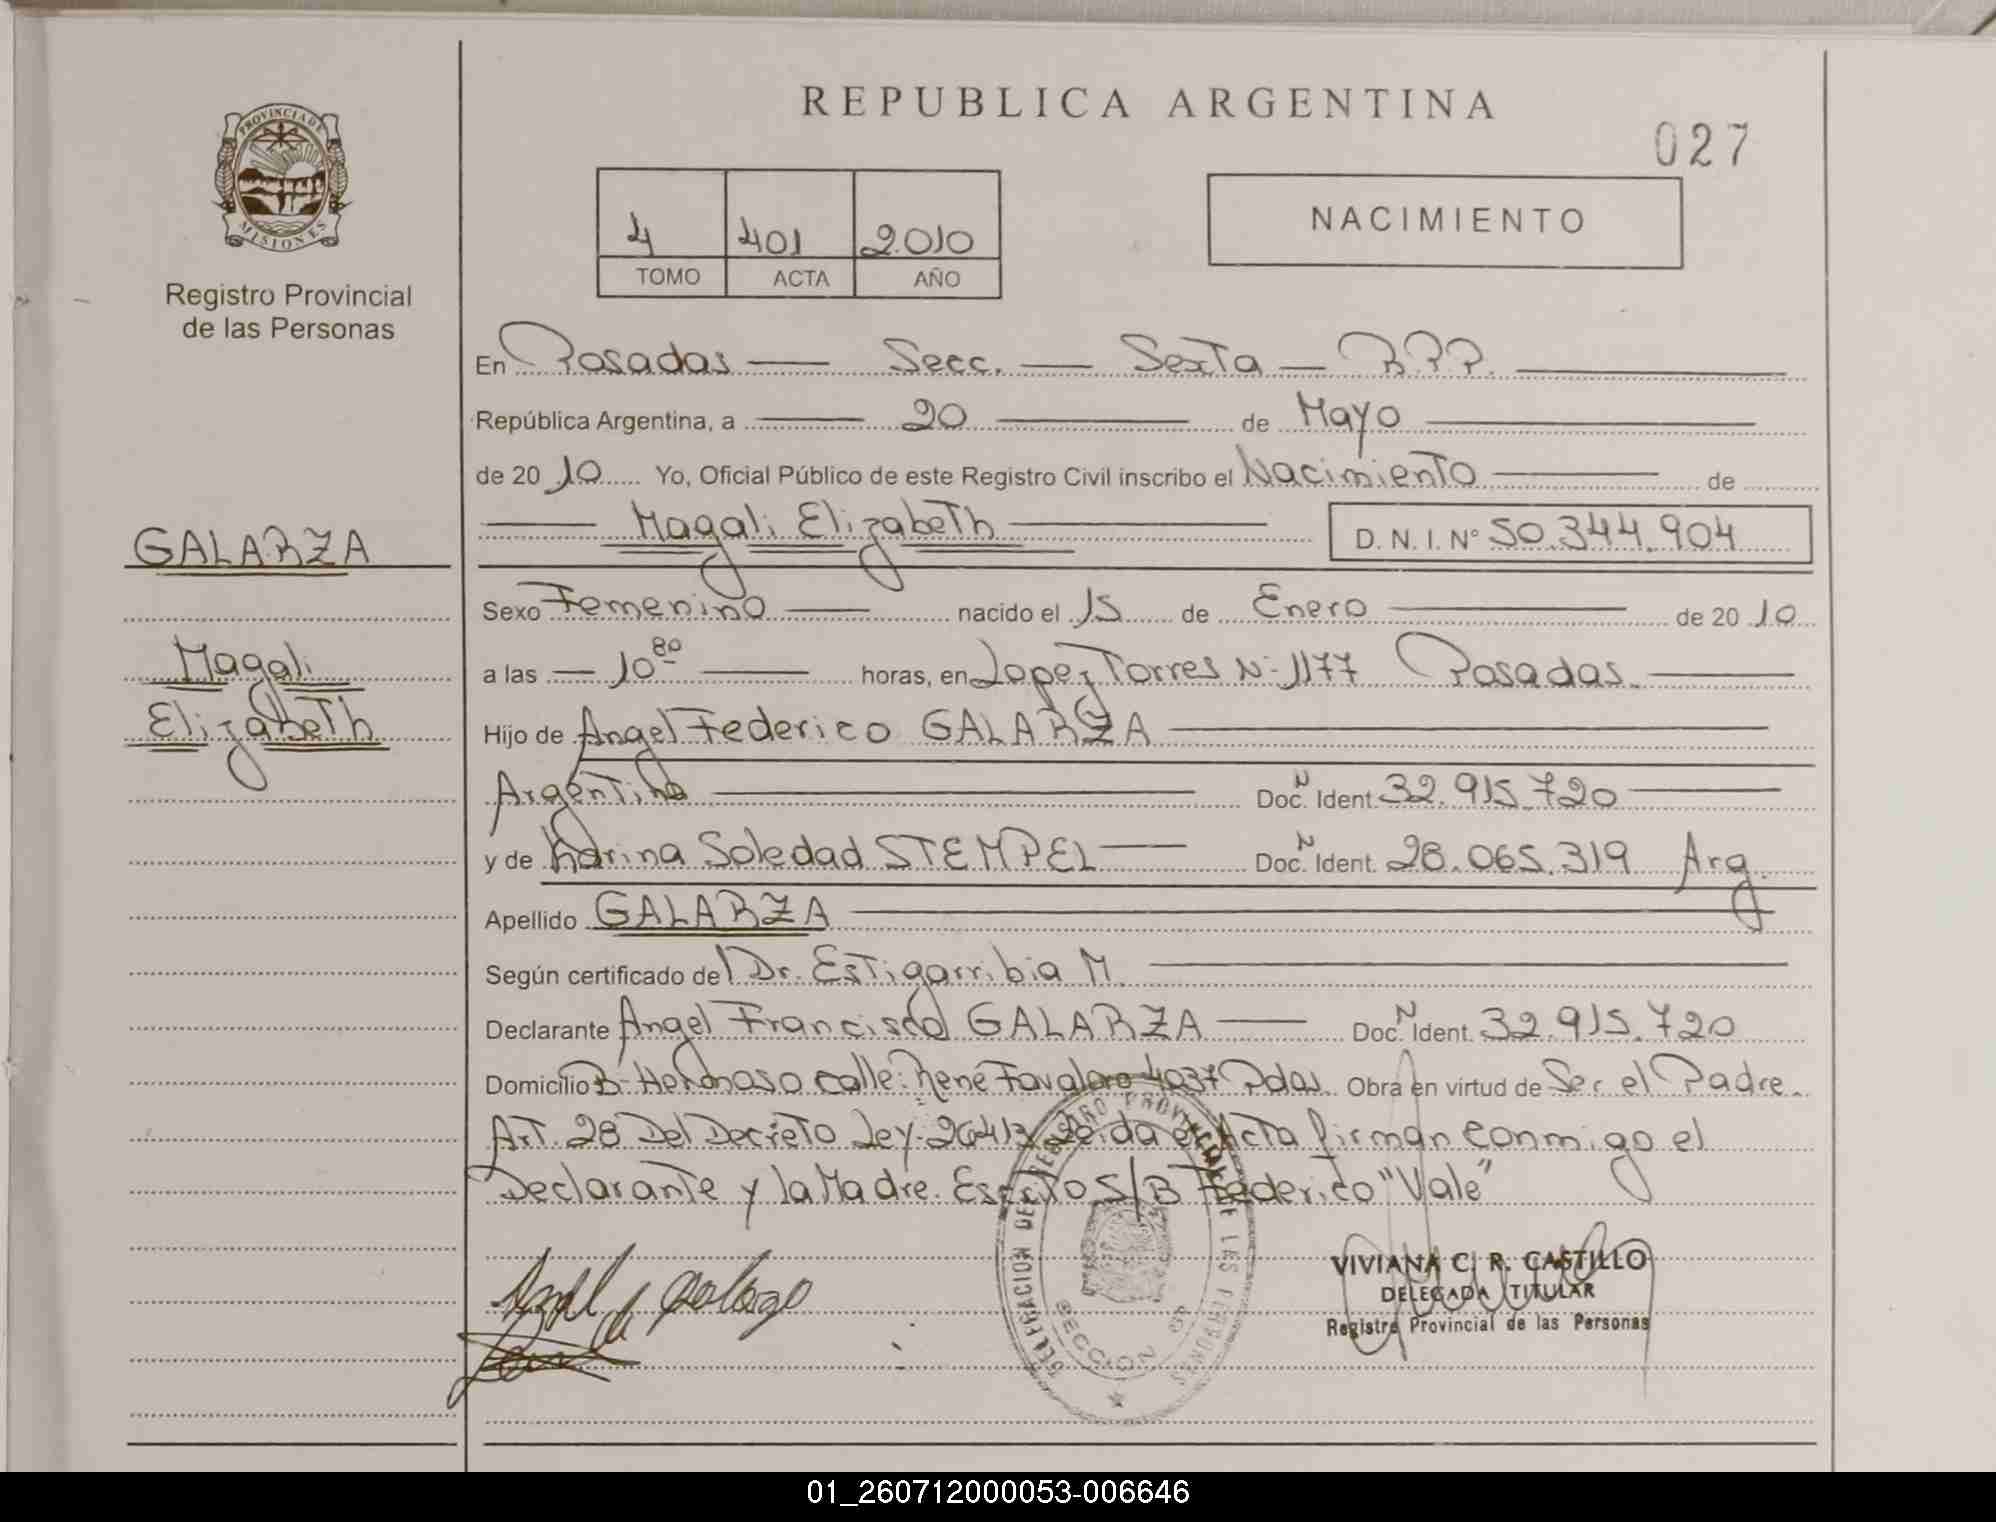 REPUBLICA ARGENTINA
027
PROVINCIA DE
MISIONES
Registro Provincial
de las Personas
4 401 2.010
TOMO ACTA AÑO
NACIMIENTO
En Posadas — Secc. — Sexta — R.P.P.
República Argentina, a — 20 — de Mayo
de 20 10 Yo, Oficial Público de este Registro Civil inscribo el Nacimiento — de
Magali Elizabeth D. N. I. Nº 50.344.904
GALARZA
Magali
Elizabeth
Sexo Femenino — nacido el 15 de Enero — de 20 10
a las — 10 — horas, en Lopez Torres Nº 1177 Posadas.
Hijo de Angel Federico GALARZA
Argentino — Doc. N Ident. 32.915.720
y de Karina Soledad STEMPEL — Doc. N Ident. 28.065.319 Arg.
Apellido GALARZA
Según certificado del Dr. Estigarribia M.
Declarante Angel Francisco GALARZA — Doc. N Ident. 32.915.720
Domicilio Bº Hermoso calle: René Favaloro 4037 Pdas. Obra en virtud de Ser el Padre.
Art. 28 Del Decreto Ley. 26413 Leida el Acta firman conmigo el
Declarante y la Madre. Escrito S/B Federico "Vale"
DELEGACION DEL REGISTRO PROVINCIAL DE LAS PERSONAS
SECCION 6ª
VIVIANA C. R. CASTILLO
DELEGADA TITULAR
Registro Provincial de las Personas
01_260712000053-006646